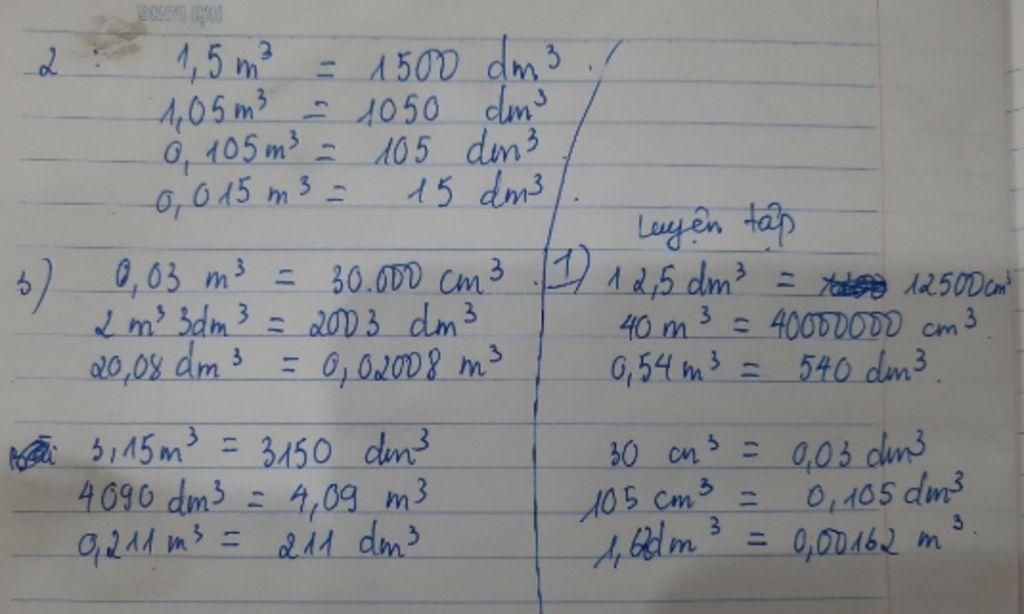 HẢI LONG
2 : 1,5 m³ = 1500 dm³.
1,05 m³ = 1050 dm³
0,105 m³ = 105 dm³
0,015 m³ = 15 dm³.
3) 0,03 m³ = 30.000 cm³
2 m³ 3dm³ = 2003 dm³
20,08 dm³ = 0,02008 m³
3,15m³ = 3150 dm³
4090 dm³ = 4,09 m³
0,211 m³ = 211 dm³
Luyện tập
1) 12,5 dm³ = 12500 cm³
40 m³ = 40000000 cm³.
0,54 m³ = 540 dm³.
30 cm³ = 0,03 dm³
105 cm³ = 0,105 dm³
1,62dm³ = 0,00162 m³.